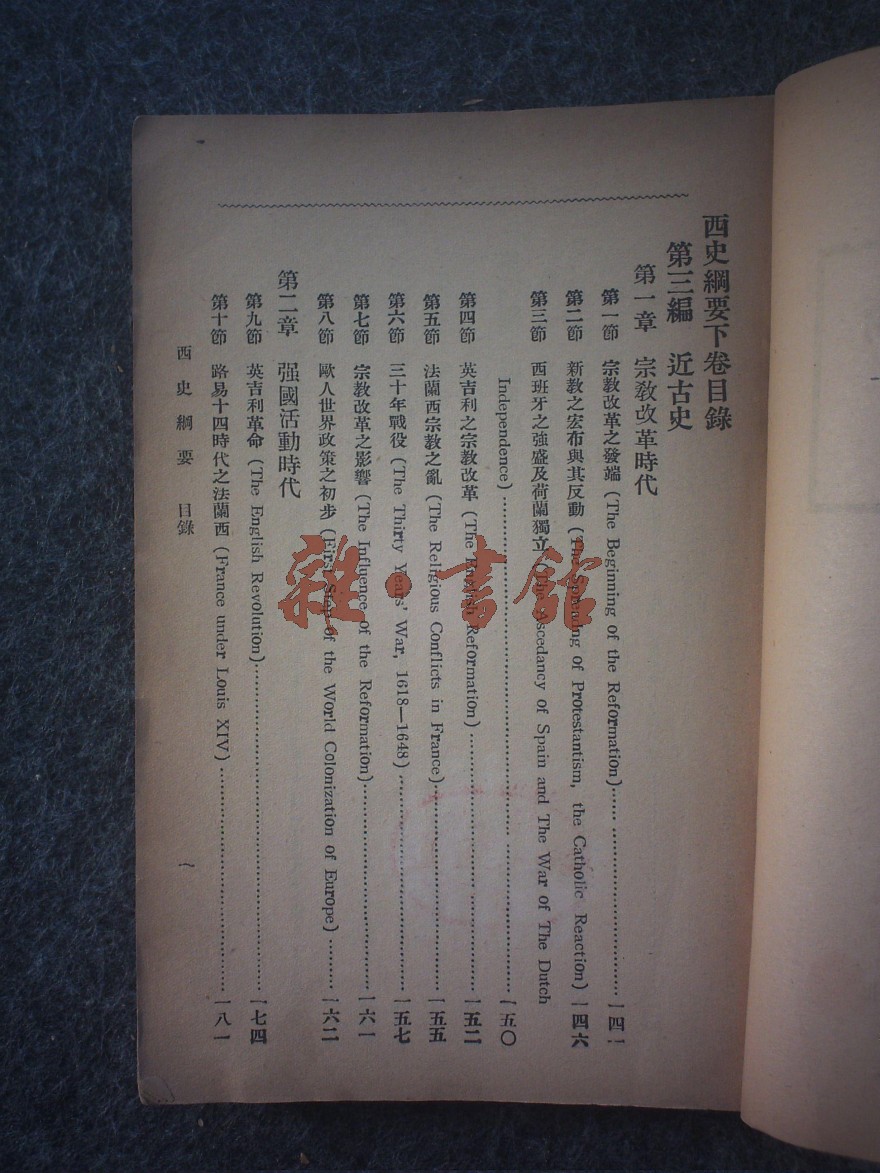 西史綱要下卷目錄
第三編 近古史
第一章 宗敎改革時代
第一節 宗敎改革之發端 (The Beginning of the Reformation)…… ……………………一四一
第二節 新教之宏布與其反動 (The Spreading of Protestantism, the Catholic Reaction) 一四六
第三節 西班牙之強盛及荷蘭獨立 (The Ascedancy of Spain and The War of The Dutch
Independence) ……………………………………………… ……………………一五〇
第四節 英吉利之宗教改革 (The English Reformation) ………………… …………一五二
第五節 法蘭西宗教之亂 (The Religious Conflicts in France)…………………………一五五
第六節 三十年戰役 (The Thirty Years' War, 1618—1648) …………………………一五七
第七節 宗教改革之影響 (The Influence of the Reformation)…………………………一六一
第八節 歐人世界政策之初步 (First Step of the World Colonization of Europe) ………一六二
第二章 强國活動時代
第九節 英吉利革命 (The English Revolution)…………………………………………一七四
第十節 路易十四時代之法蘭西 (France under Louis XIV) ……………………………一八一
西史綱要 目錄
一
雜·書館